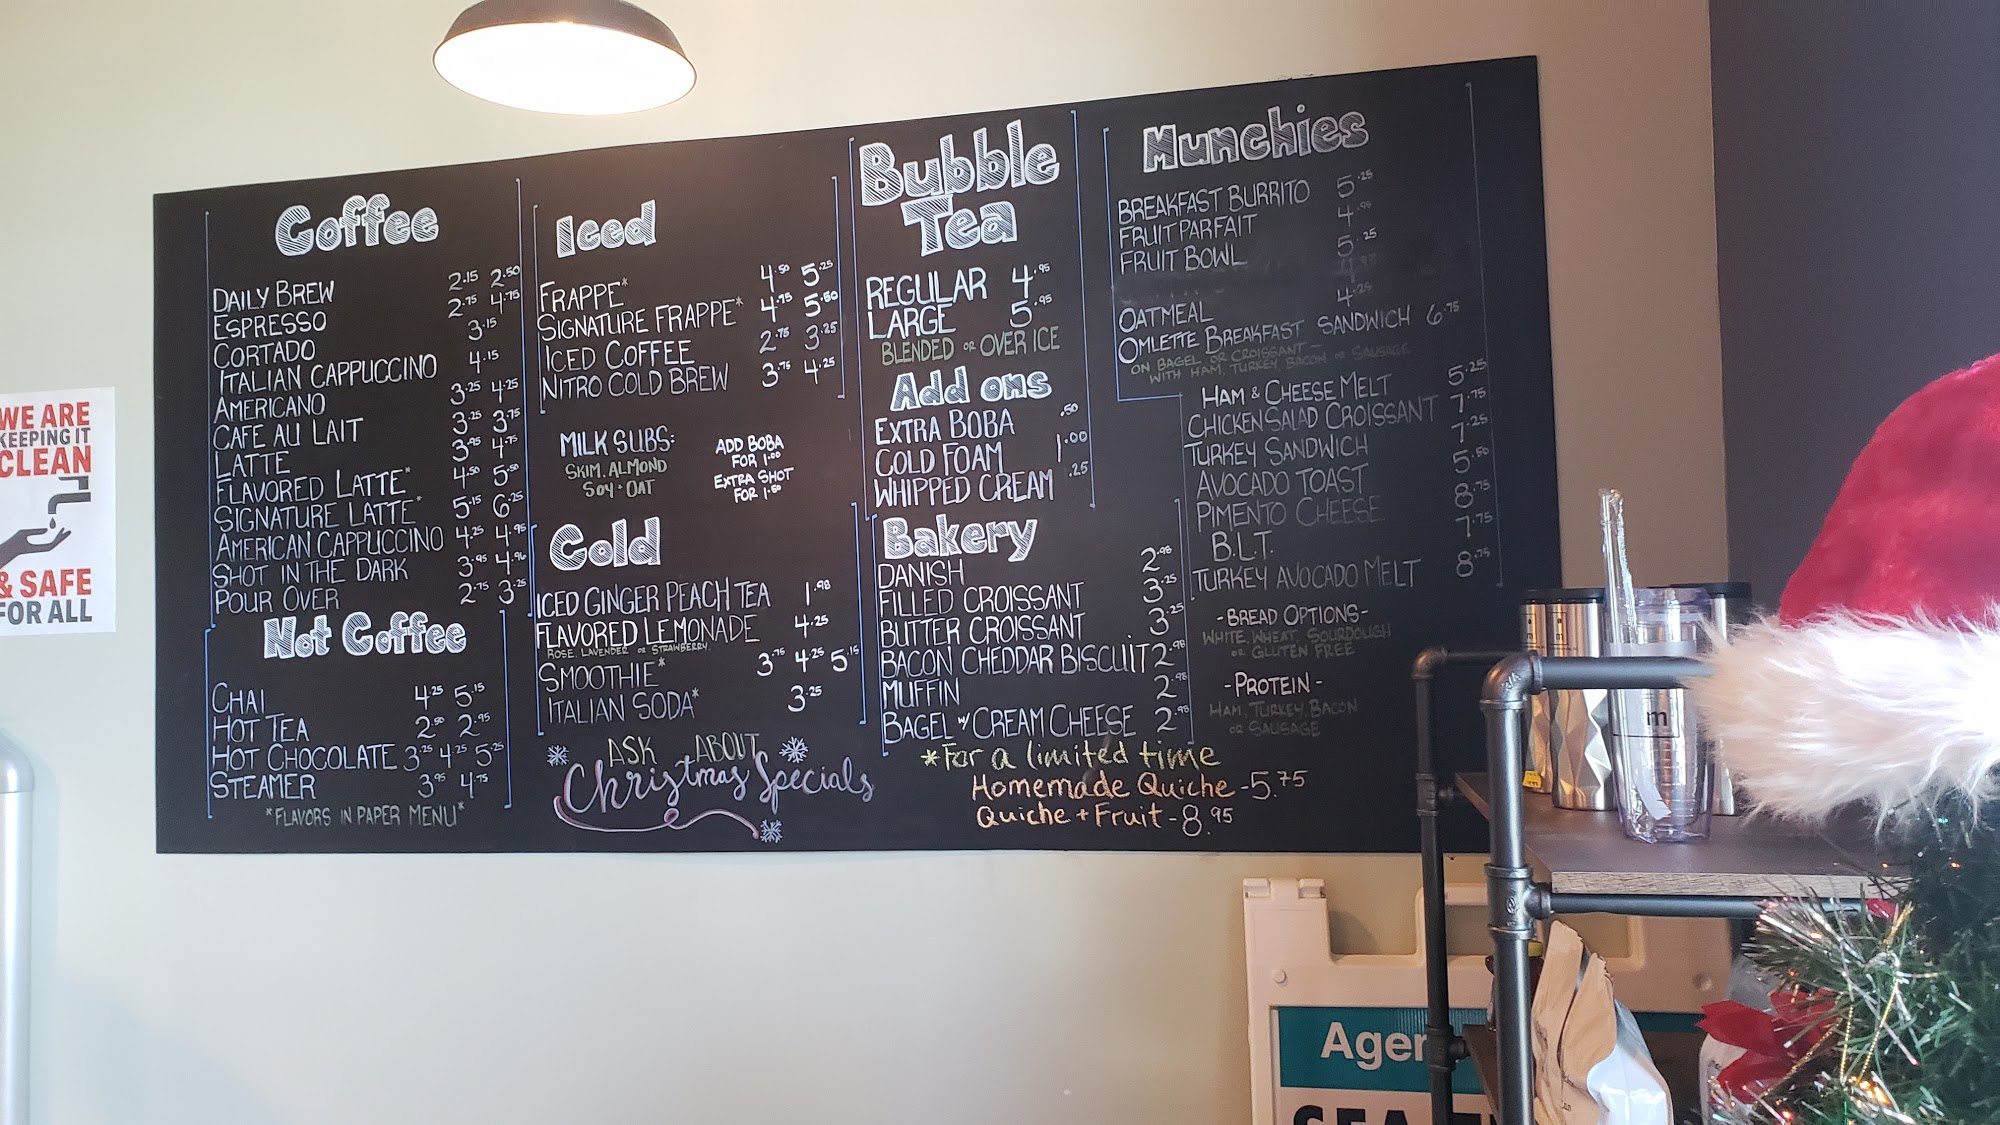 WE ARE
KEEPING IT
CLEAN
& SAFE
FOR ALL
Coffee
DAILY BREW 2.15 2.50
ESPRESSO 2.75 4.75
CORTADO 3.15
ITALIAN CAPPUCCINO 4.15
AMERICANO 3.25 4.25
CAFE AU LAIT 3.25 3.75
LATTE 3.95 4.75
FLAVORED LATTE* 4.50 5.50
SIGNATURE LATTE* 5.15 6.25
AMERICAN CAPPUCCINO 4.25 4.95
SHOT IN THE DARK 3.95 4.96
POUR OVER 2.75 3.25
Not Coffee
CHAI 4.25 5.15
HOT TEA 2.50 2.95
HOT CHOCOLATE 3.25 4.25 5.25
STEAMER 3.95 4.75
*FLAVORS IN PAPER MENU*
Iced
FRAPPE* 4.50 5.25
SIGNATURE FRAPPE* 4.75 5.50
ICED COFFEE 2.75 3.25
NITRO COLD BREW 3.75 4.25
MILK SUBS:
SKIM, ALMOND
SOY · OAT
ADD BOBA
FOR 1.00
EXTRA SHOT
FOR 1.50
Cold
ICED GINGER PEACH TEA 1.98
FLAVORED LEMONADE 4.25
ROSE, LAVENDER OR STRAWBERRY
SMOOTHIE* 3.75 4.25 5.15
ITALIAN SODA* 3.25
ASK ABOUT
Christmas Specials
Bubble
Tea
REGULAR 4.95
LARGE 5.95
BLENDED OR OVER ICE
Add ons
EXTRA BOBA .50
COLD FOAM 1.00
WHIPPED CREAM .25
Bakery
DANISH 2.98
FILLED CROISSANT 3.25
BUTTER CROISSANT 3.25
BACON CHEDDAR BISCUIT 2.98
MUFFIN 2.98
BAGEL W/ CREAM CHEESE 2.98
*For a limited time
Homemade Quiche - 5.75
Quiche + Fruit - 8.95
Munchies
BREAKFAST BURRITO 5.25
FRUIT PARFAIT 4.95
FRUIT BOWL 5.25
OATMEAL 4.25
OMLETTE BREAKFAST SANDWICH 6.75
ON BAGEL OR CROISSANT -
WITH HAM, TURKEY, BACON OR SAUSAGE
HAM & CHEESE MELT 5.25
CHICKEN SALAD CROISSANT 7.75
TURKEY SANDWICH 7.25
AVOCADO TOAST 5.50
PIMENTO CHEESE 8.75
B.L.T. 7.75
TURKEY AVOCADO MELT 8.75
- BREAD OPTIONS -
WHITE, WHEAT, SOURDOUGH
OR GLUTEN FREE
- PROTEIN -
HAM, TURKEY, BACON
OR SAUSAGE
m
Agen